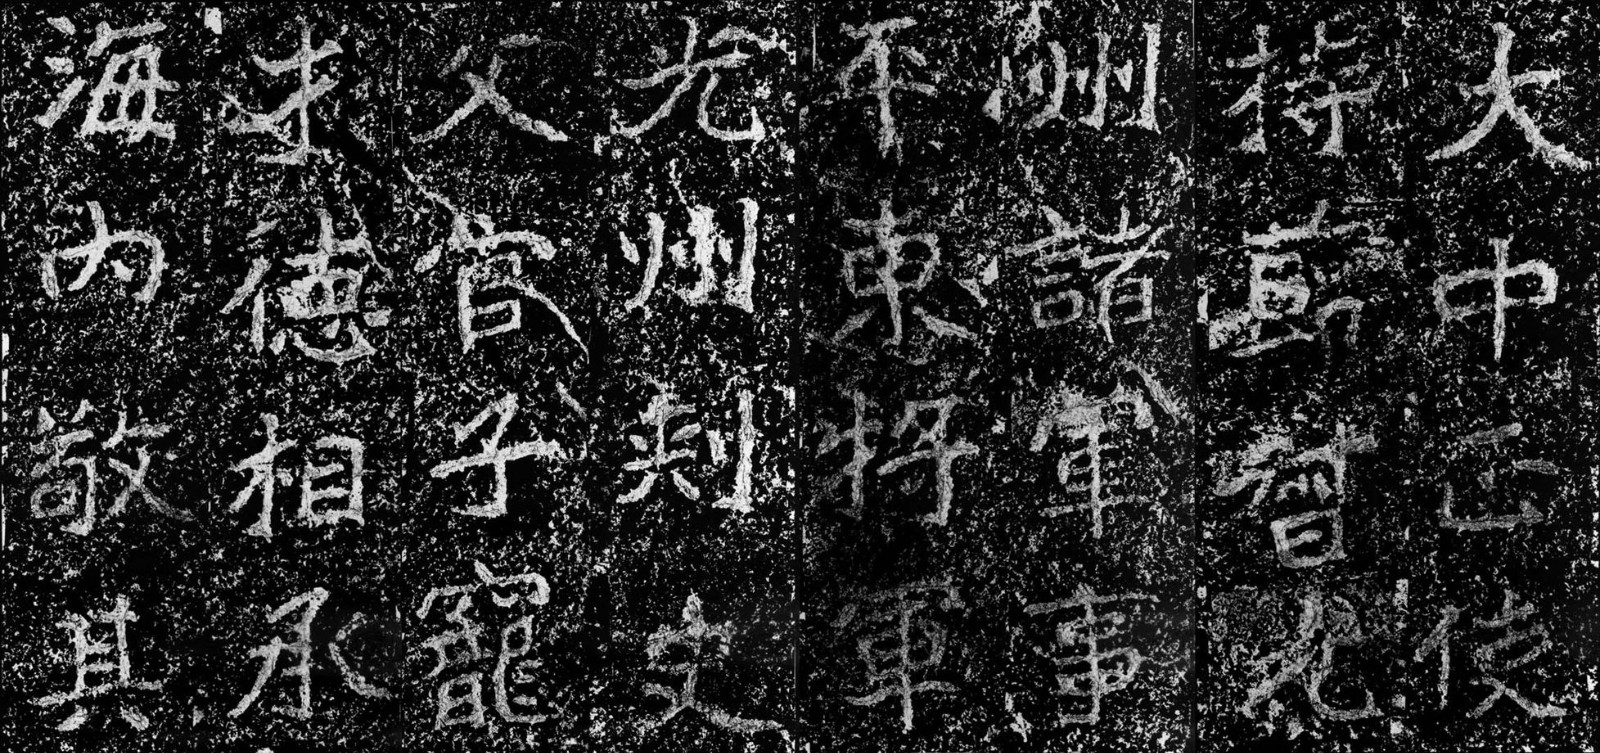 大中正使
持節督光
州諸軍事
平東將軍
光州刺史
父官子寵
才德相承
海內敬其